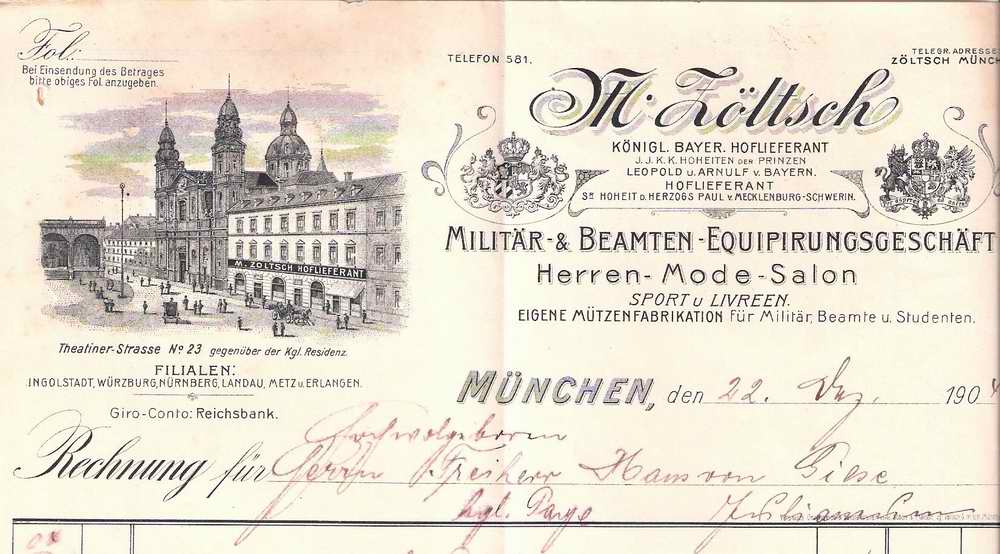 Fol:
Bei Einsendung des Betrages
bitte obiges Fol. anzugeben.
TELEFON 581.
TELEGR. ADRESSE
ZÖLTSCH MÜNCH
M. Zöltsch
KÖNIGL. BAYER. HOFLIEFERANT
J.J.K.K. HOHEITEN DER PRINZEN
LEOPOLD u. ARNULF v. BAYERN.
HOFLIEFERANT
Sr. HOHEIT D. HERZOGS PAUL v. MECKLENBURG-SCHWERIN.
MILITÄR- & BEAMTEN-EQUIPIRUNGSGESCHÄFT
Herren-Mode-Salon
SPORT u LIVREEN.
EIGENE MÜTZENFABRIKATION für Militär, Beamte u. Studenten.
M. ZÖLTSCH HOFLIEFERANT
Theatiner-Strasse No 23 gegenüber der Kgl. Residenz.
FILIALEN:
INGOLSTADT, WÜRZBURG, NÜRNBERG, LANDAU, METZ u. ERLANGEN.
Giro-Conto: Reichsbank.
MÜNCHEN, den 22. Dez. 1904
Hochwolgeboren
Rechnung für Herrn Freiherr Hans von Giese
kgl. Page